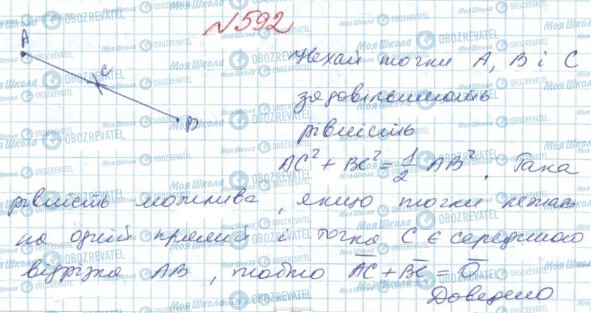 №592
A
C
B
Нехай точки A, B і C
задовільнимоть
рівність
AC² + BC² = 1/2 AB². Така
рівність можлива, якщо точки лежать
на одній прямій і точка C є серединого
відрізка AB, тобто AC + BC = O
Доведено